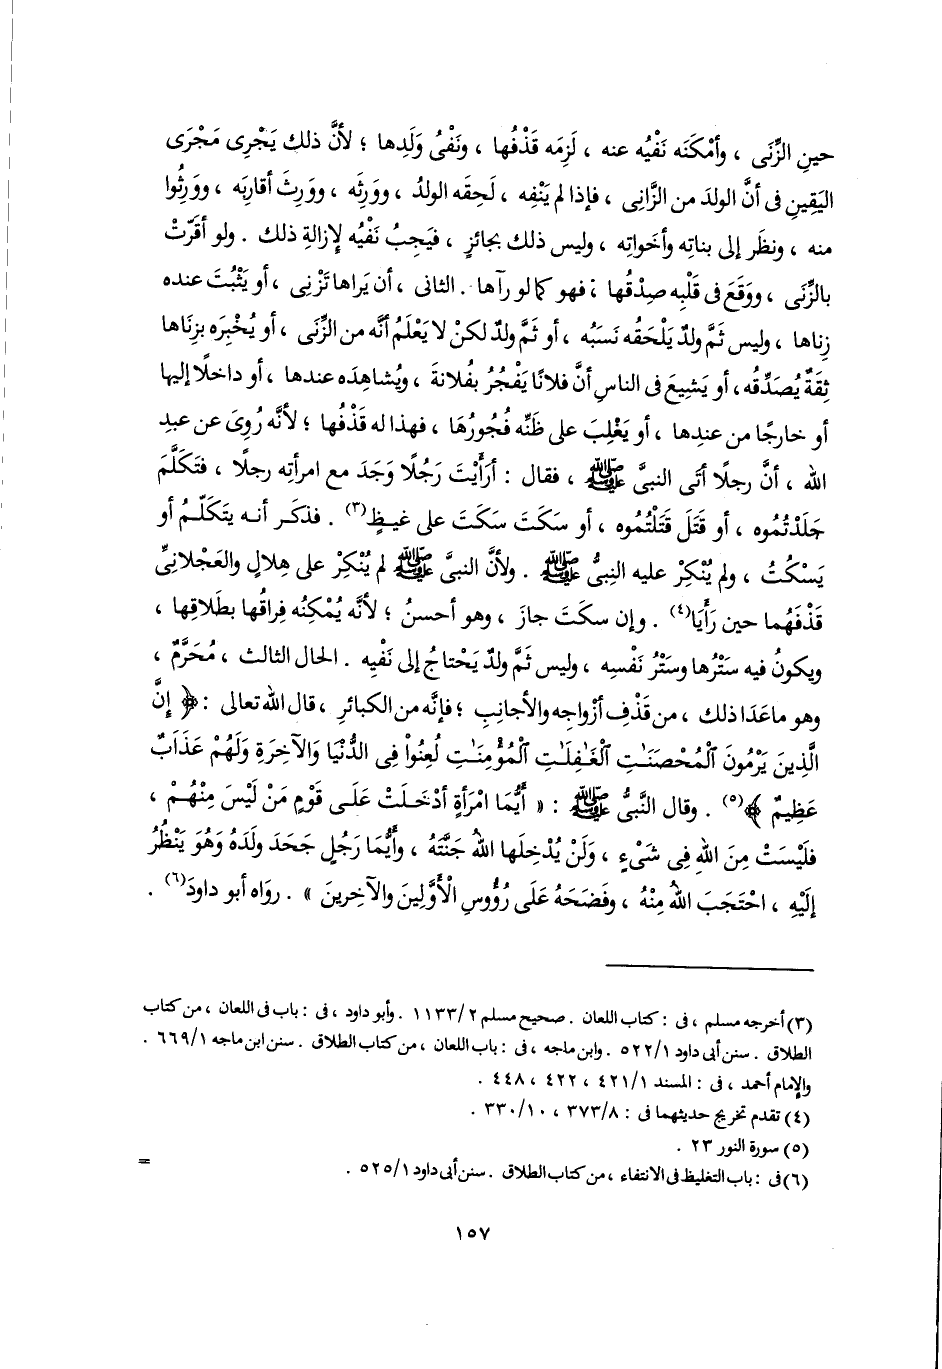 حينِ الزِّنَى ، وأمْكَنَه نَفْيُه عنه ، لَزِمَه قَذْفُها ، ونَفْىُ وَلَدِها ؛ لأنَّ ذلك يَجْرِى مَجْرَى
اليَقِينِ فى أنَّ الولدَ من الزَّانِى ، فإذا لم يَنْفِه ، لَحِقَه الولدُ ، ووَرِثَه ، ووَرِثَ أقارِبَه ، ووَرِثُوا
منه ، ونظَر إلى بناتِه وأخَواتِه ، وليس ذلك بجائزٍ ، فيَجِبُ نَفْيُه لإزالةِ ذلك . ولو أقَرَّتْ
بالزِّنَى ، ووَقَعَ فى قَلْبِه صِدْقُها ؛ فهو كما لو رآها . الثانى ، أن يَراها تَزْنِى ، أو يَثْبُتَ عنده
زِناها ، وليس ثَمَّ ولدٌ يَلْحَقُه نَسَبُه ، أو ثَمَّ ولدٌ لكنْ لا يَعْلَمُ أنَّه من الزِّنَى ، أو يُخْبِرَه بزِنَاها
ثِقَةٌ يُصَدِّقُه، أو يَشِيعَ فى الناسِ أنَّ فلانًا يَفْجُرُ بفُلانةَ ، ويُشاهِدَه عندها ، أو داخلًا إليها
أو خارجًا من عندِها ، أو يَغْلِبَ على ظَنِّه فُجُورُهَا ، فهذا له قَذْفُها ؛ لأنَّه رُوِىَ عن عبدِ
الله ، أنَّ رجلًا أتَى النبىَّ ﷺ ، فقال : أرَأَيْتَ رَجُلًا وَجَدَ مع امرأتِه رجلًا ، فتَكَلَّمَ
جَلَدْتُمُوه ، أو قَتَلَ قَتَلْتُمُوه ، أو سَكَتَ سَكَتَ على غيظٍ(٣) . فذكَر أنه يَتَكَلَّمُ أو
يَسْكُتُ ، ولم يُنْكِرْ عليه النبىُّ ﷺ . ولأنَّ النبىَّ ﷺ لم يُنْكِرْ على هِلالٍ والعَجْلانِىِّ
قَذْفَهُما حين رَأَيَا(٤) . وإن سكَتَ جازَ ، وهو أحسنُ ؛ لأنَّه يُمْكِنُه فِراقُها بطَلاقِها ،
ويكونُ فيه سَتْرُها وسَتْرُ نَفْسِه ، وليس ثَمَّ ولدٌ يَحْتاجُ إلى نَفْيِه . الحال الثالث ، مُحَرَّمٌ ،
وهو ما عَدَا ذلك ، من قَذْفِ أزْواجِه والأجانِبِ ؛ فإنَّه من الكبائرِ ، قال الله تعالى : ﴿ إِنَّ
الَّذِينَ يَرْمُونَ ٱلْمُحْصَنَـٰتِ ٱلْغَـٰفِلَـٰتِ ٱلْمُؤْمِنَـٰتِ لُعِنُواْ فِى الدُّنْيَا وَالآخِرَةِ وَلَهُمْ عَذَابٌ
عَظِيمٌ ﴾(٥) . وقال النَّبىُّ ﷺ : « أَيُّمَا امْرَأَةٍ أدْخَلَتْ عَلَى قَوْمٍ مَنْ لَيْسَ مِنْهُمْ ،
فلَيْسَتْ مِنَ اللهِ فِى شَىْءٍ ، وَلَنْ يُدْخِلَها اللهُ جَنَّتَهُ ، وأَيُّمَا رَجُلٍ جَحَدَ ولَدَهُ وَهُوَ يَنْظُرُ
إلَيْهِ ، احْتَجَبَ اللهُ مِنْهُ ، وفَضَحَهُ عَلَى رُؤُوسِ الْأَوَّلِينَ والْآخِرِينَ » . روَاه أبو داودَ(٦) .
(٣) أخرجه مسلم ، فى : كتاب اللعان . صحيح مسلم ٢/ ١١٣٣ . وأبو داود ، فى : باب فى اللعان ، من كتاب
الطلاق . سنن أبى داود ١/ ٥٢٢ . وابن ماجه ، فى : باب اللعان ، من كتاب الطلاق . سنن ابن ماجه ١/ ٦٦٩ .
والإمام أحمد ، فى : المسند ١/ ٤٢١ ، ٤٢٢ ، ٤٤٨ .
(٤) تقدم تخريج حديثهما فى : ٨/ ٣٧٣ ، ١٠/ ٣٣٠ .
(٥) سورة النور ٢٣ .
(٦) فى : باب التغليظ فى الانتفاء ، من كتاب الطلاق . سنن أبى داود ١/ ٥٢٥ .
=
١٥٧